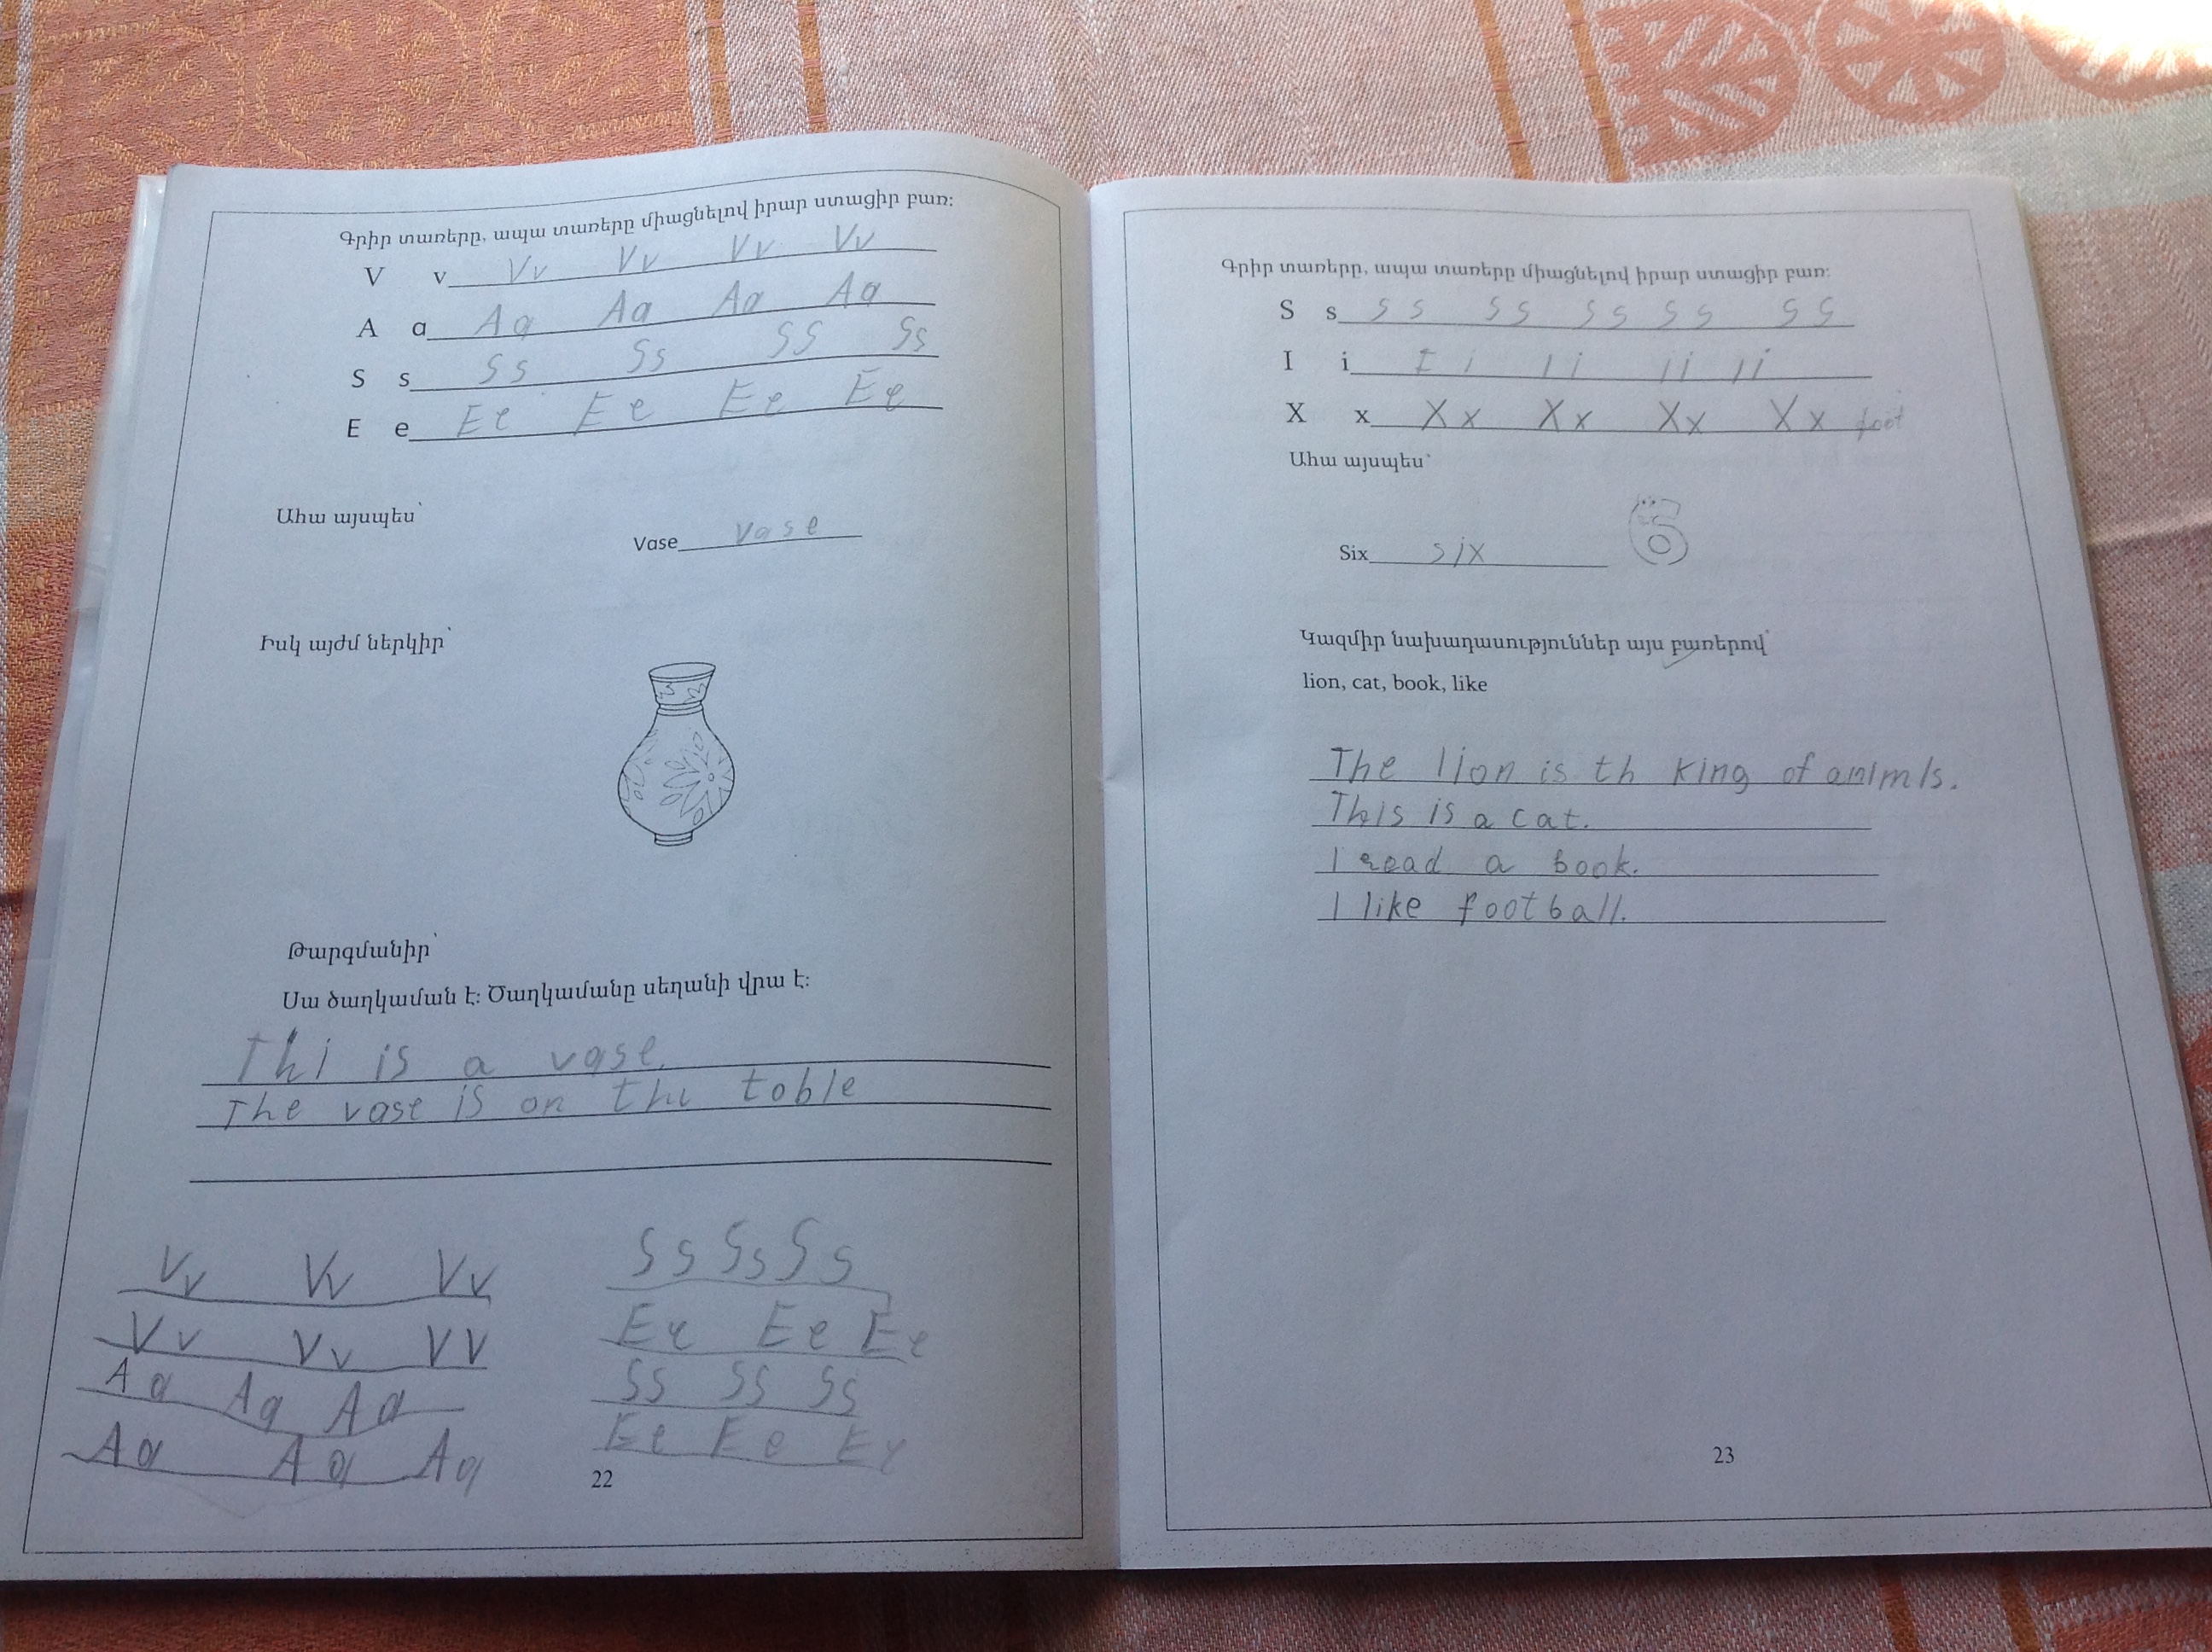 Գրիր տառերը, ապա տառերը միացնելով իրար ստացիր բառ:
V v Vv Vv Vv Vv
A a Aa Aa Aa Aa
S s Ss Ss SS Ss
E e Ee Ee Ee Ee
Ահա այսպես՝
Vase vase
Իսկ այժմ ներկիր՝
Թարգմանիր՝
Սա ծաղկաման է: Ծաղկամանը սեղանի վրա է:
Thi is a vase.
The vase is on the toble
Vv Vv Vv
Vv Vv VV
Aa Aa Aa
Aa Aa Aa
Ss Ss Ss
Ee Ee Ee
Ss Ss Ss
Ee Ee Ee
22
Գրիր տառերը, ապա տառերը միացնելով իրար ստացիր բառ:
S s S s S s S s S s S s
I i I i I i I i I i
X x X x X x X x X x foot
Ահա այսպես՝
Six six
6
Կազմիր նախադասություններ այս բառերով՝
lion, cat, book, like
The lion is th king of animls.
This is a cat.
I read a book.
I like football.
23